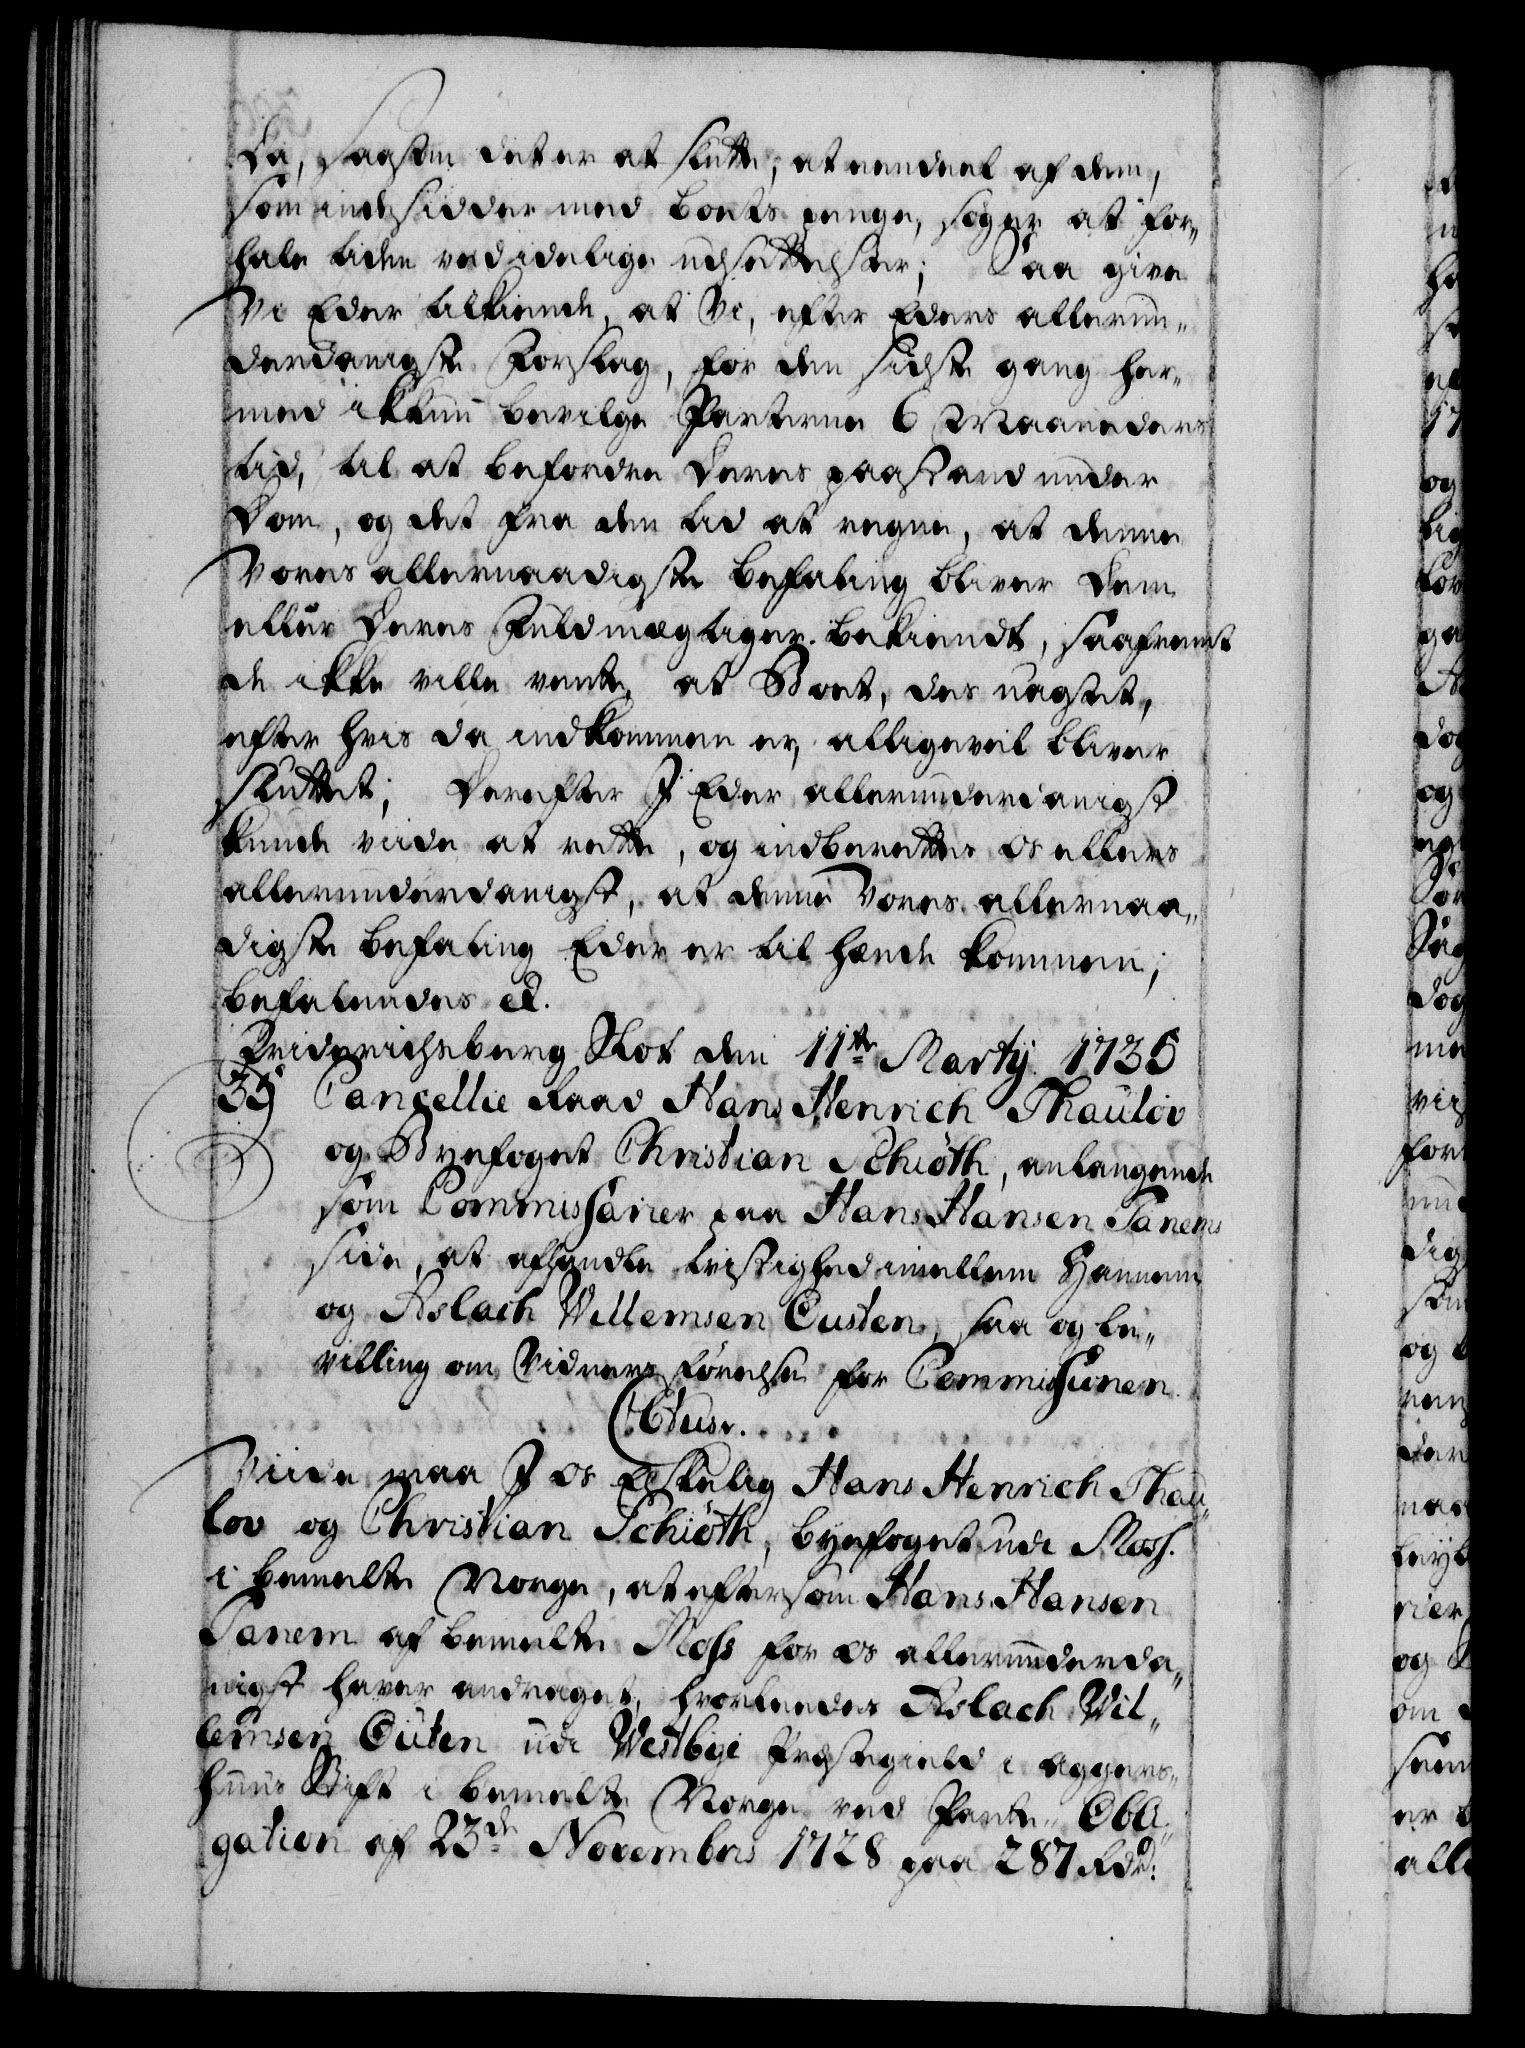 da, saasom det er at slutte, at eendeel af dem,
som indesidder med boets penge, søger at for„
hale tiden ved idelige udsættelser; Saa give
Vi Eder tilkiende, at Vi, efter Eders allerun„
derdanigste Forslag, for den sidste gang her„
med ikkun bevilge Parterne 6 Maaneders
tid, til at befordre deres paastand under
Dom, og det fra den tid at regne, at denne
Vores allernaadigste befaling bliver dem
eller deres Fuldmægtiger bekiendt, saafremt
de ikke ville vente, at Boet, des uagtet,
efter hvis da indkommen er, alligevel bliver
sluttet; Derefter I Eder allerunderdanigst
kunde viide at rette, og indberettes os ellers
allerunderdanigst, at denne Vores allernaa„
digste befaling Eder er til hænde kommen;
befalendes etc.
Friderichsberg Slot den 11te Martij 1735
35 Cancellie Raad Hans Henrich Thaulov
og Byefoget Christian Schiöth, anlangende
som Commissarier paa Hans Hansen Tanems
side, at afhandle tvistighed imellem Hannem
og Aslach Willemsen Custen, saa og be„
villing om Vidners førelse for Commissionen.
C6tus r.
Viide maa I os Elskelig Hans Henrich Thau„
lov og Christian Schiöth, byefoget udi Moss.
i bemelte Norge, at eftersom Hans Hansen
Tanem af bemelte Moss for os allerunderda„
nigst haver andraget, hvorledes Aslach Wil„
lemsen Cuten udi Westbye Præstegield i Aggers„
huus Stift i bemelte Norge ved Pante„ Obli„
gation af 23de Novembris 1728 paa 287 Rdr: